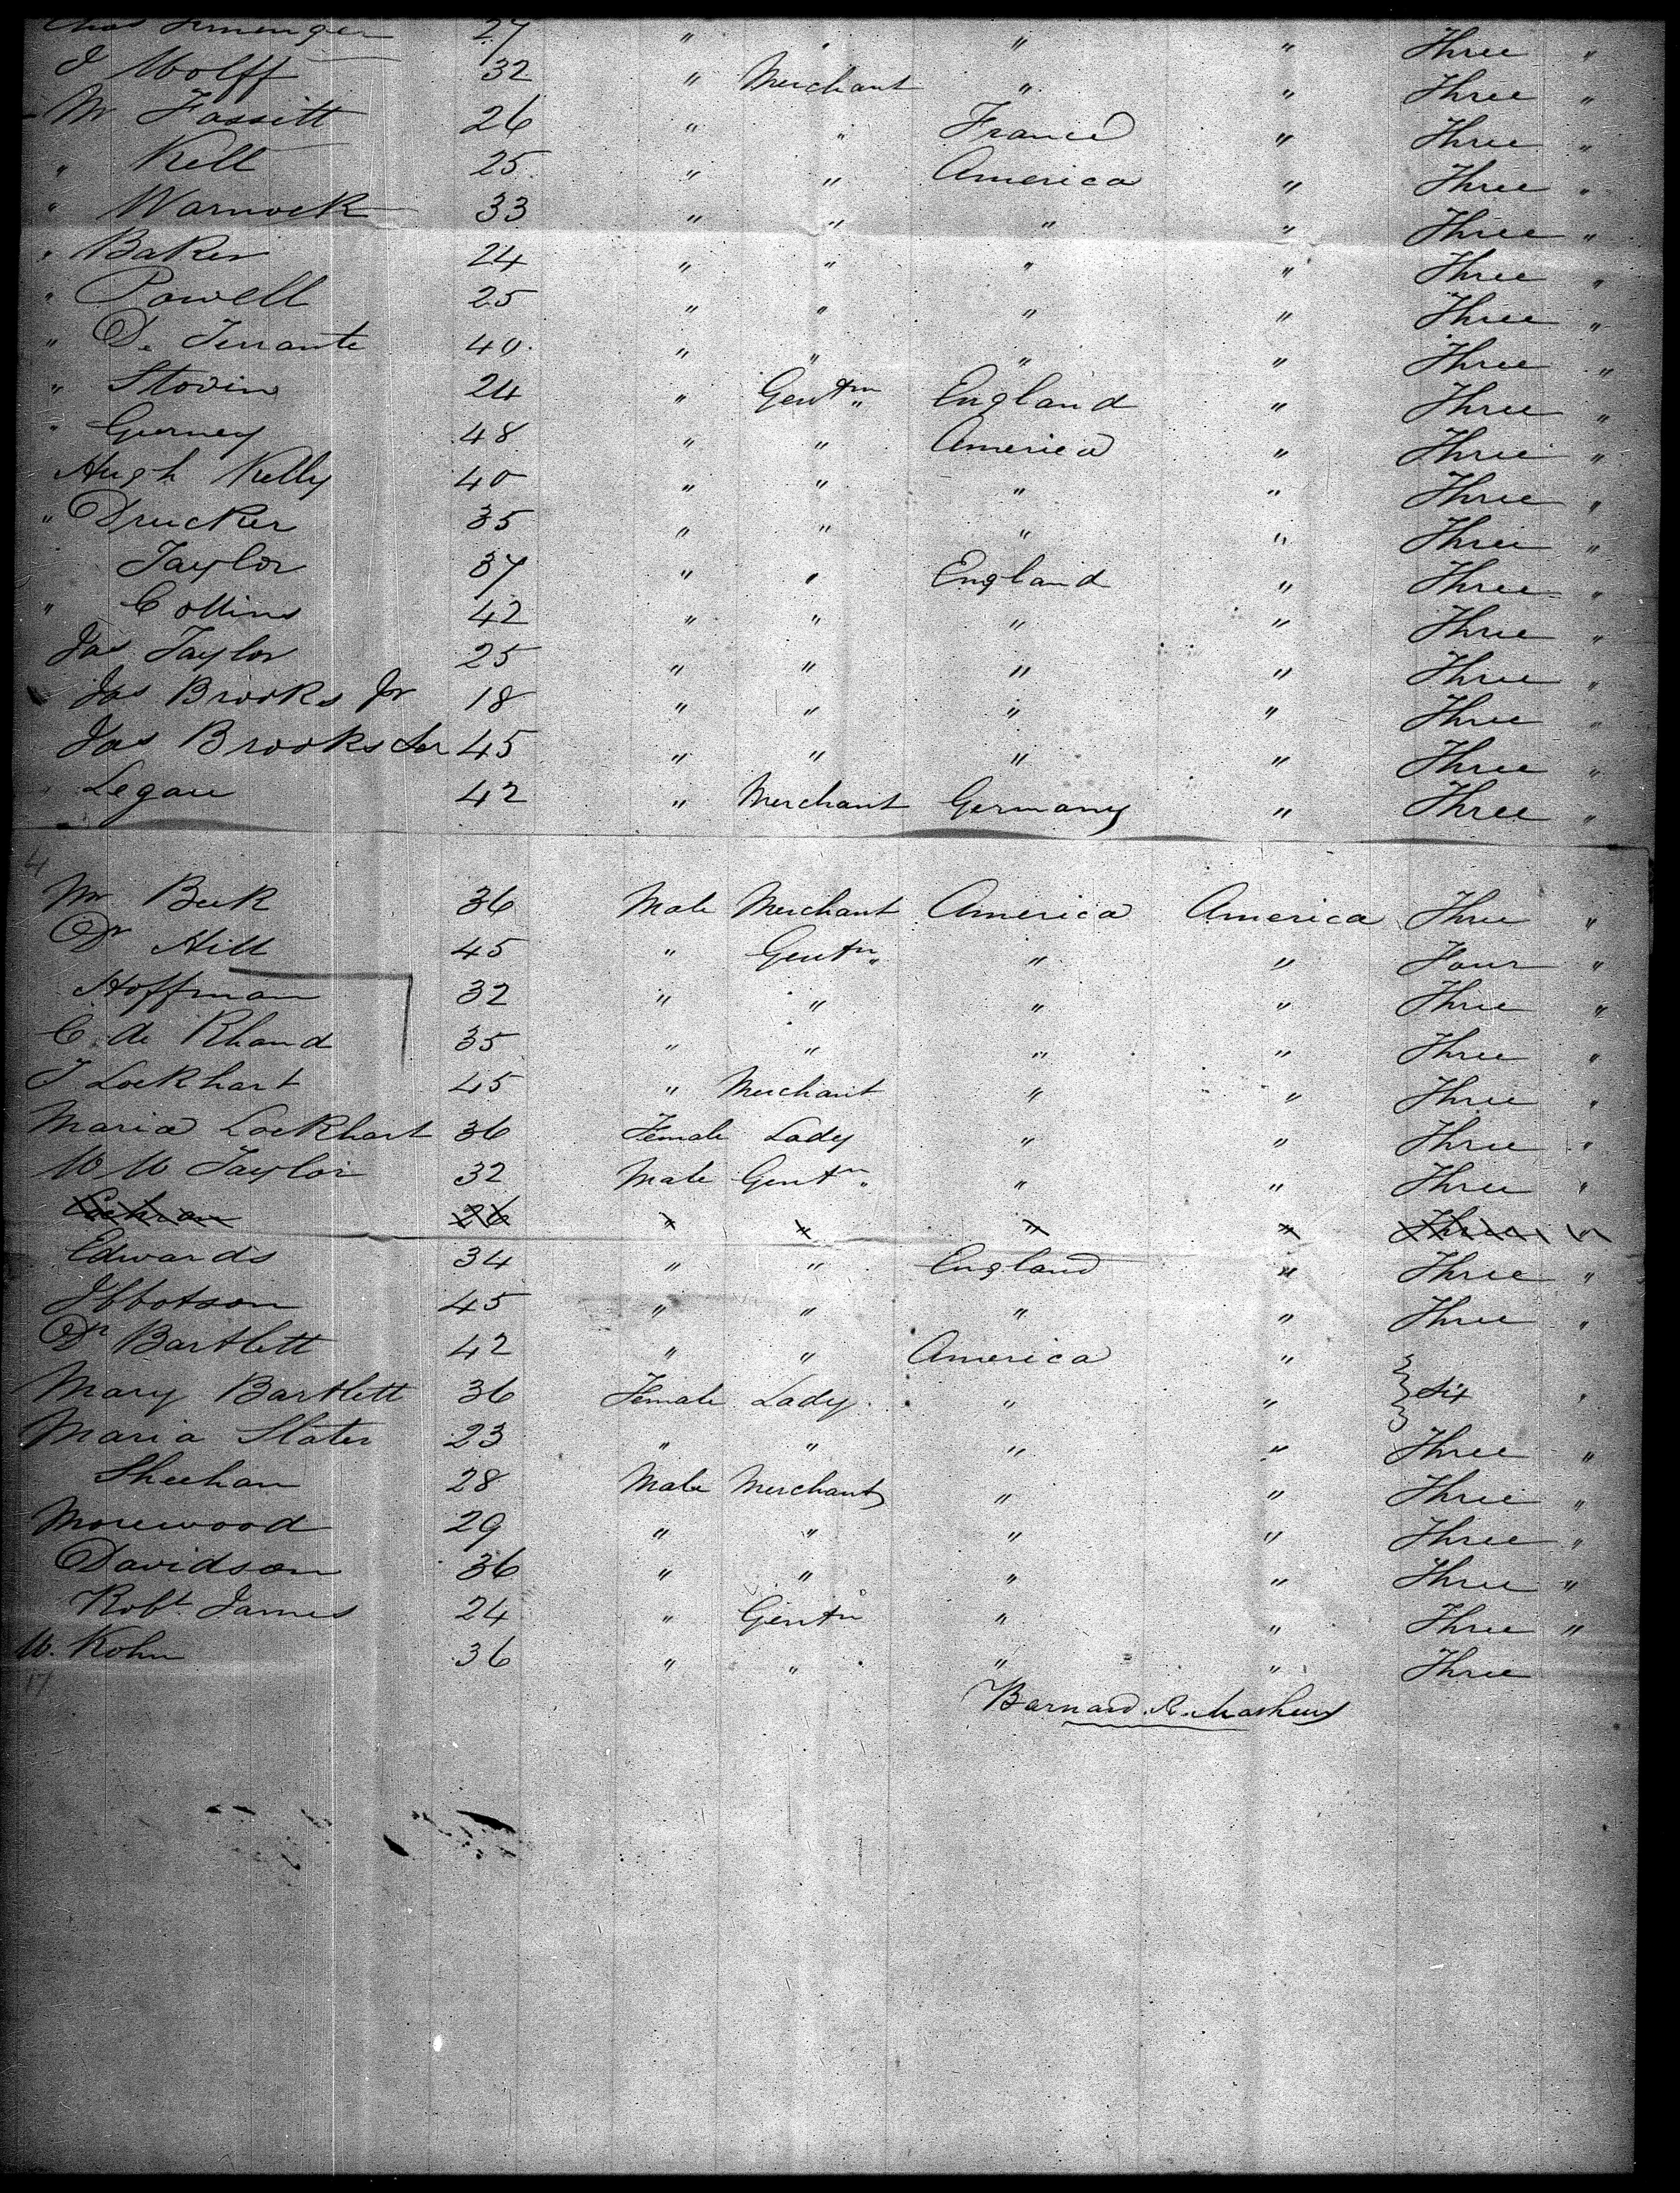 27 " " " " Three "
J Wolff 32 " Merchant " " Three "
Mr Fassitt 26 " " France " Three "
" Kell 25 " " America " Three "
" Warnock 33 " " " " Three "
" Baker 24 " " " " Three "
" Powell 25 " " " " Three "
" De Terrante 40 " " " " Three "
" Stovin 24 " Gentm England " Three "
" Gurney 48 " " America " Three "
Hugh Kelly 40 " " " " Three "
" Drucker 35 " " " " Three "
Taylor 37 " " England " Three "
" Collins 42 " " " " Three "
Jas Taylor 25 " " " " Three "
Jas Brooks Jr 18 " " " " Three "
Jas Brooks Ser 45 " " " " Three "
" Legau 42 " Merchant Germany " Three "
4
Mr Beek 36 Male Merchant America America Three "
Dr Hill 45 " Gentn " " Four "
Hoffman 32 " " " " Three "
C. de Rhand 35 " " " " Three "
J Lockhart 45 " Merchant " " Three "
Maria Lockhart 36 Female Lady " " Three "
W W Taylor 32 Male Gentn " " Three "
26 " " " " Three "
Edwards 34 " " England " Three "
Ibbotson 45 " " " " Three "
Dr Bartlett 42 " " America "
Mary Bartlett 36 Female Lady " " } Six "
Maria Slater 23 " " " " Three "
Sheehan 28 Male Merchant " " Three "
Morewood 29 " " " " Three "
Davidson 36 " " " " Three "
Robt James 24 " Gentn " " Three "
W. Kohn 36 " " " " Three
17
Barnard R. Mathews